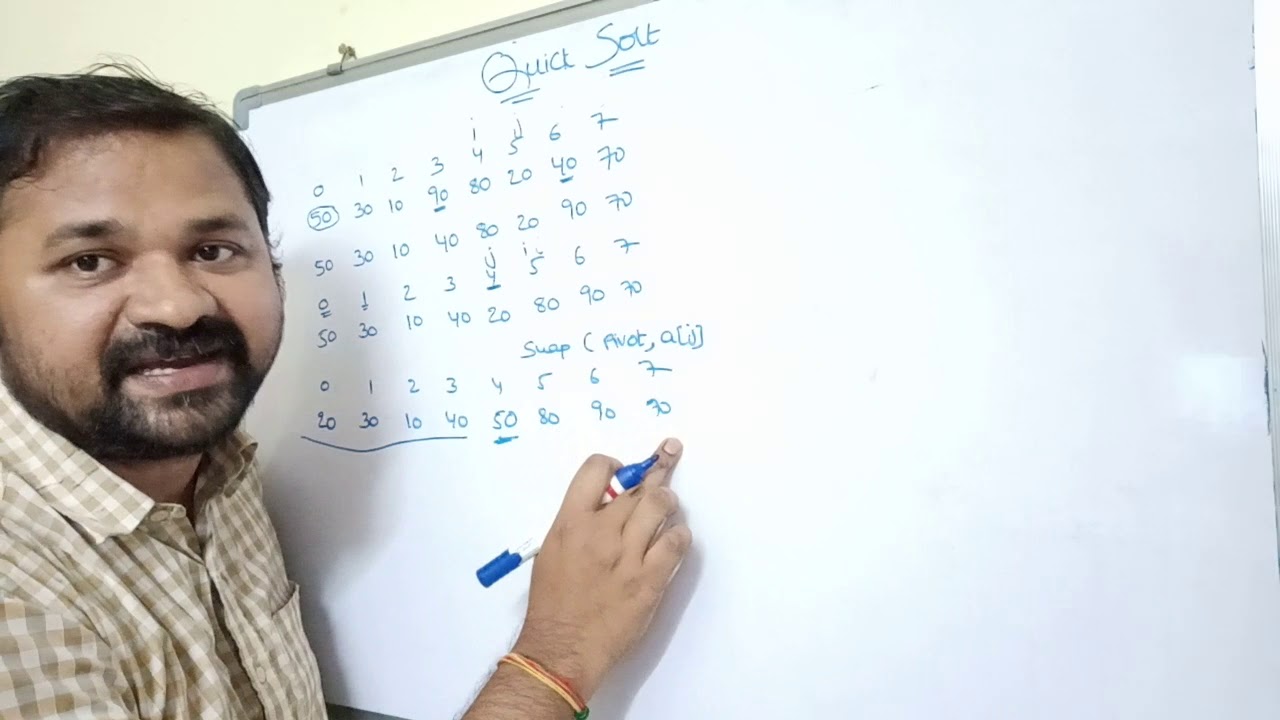 Quick Sort
i j
0 1 2 3 4 5 6 7
50 30 10 90 80 20 40 70
50 30 10 40 80 20 90 70
j i
0 1 2 3 4 5 6 7
50 30 10 40 20 80 90 70
Swap (Pivot, a[j]
0 1 2 3 4 5 6 7
20 30 10 40 50 80 90 70